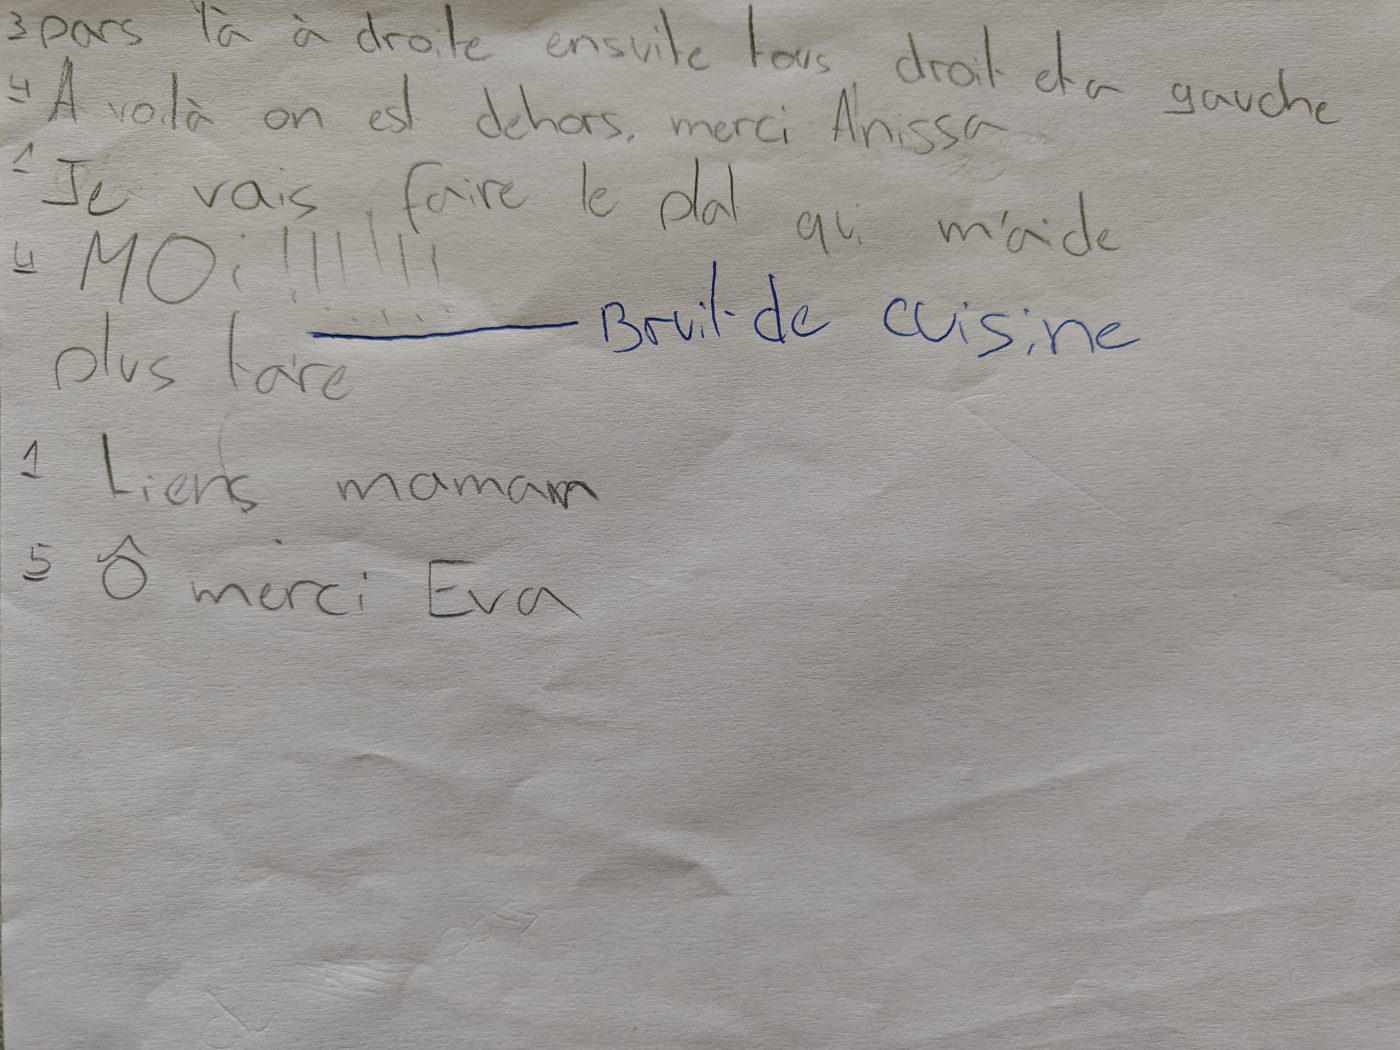 3 pars là à droite ensuite tous droit et a gauche
4 A voilà on est dehors, merci Anissa
1 Je vais faire le plat qui m'aide
4 MOi !!!!!!!
Bruit de cuisine
plus tare
1 Liens maman
5 Ô merci Eva